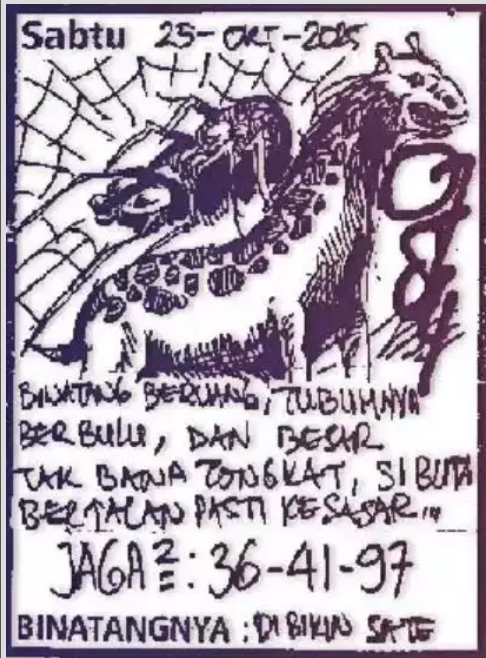 Sabtu 25-OKT-2025
BINATANG BERUANG, TUBUHNYA
BERBULU, DAN BESAR
TAK BAWA TONGKAT, SI BUTA
BERJALAN PASTI KESASAR...
JAGA²: 36-41-97
BINATANGNYA : DI BIKIN SATE